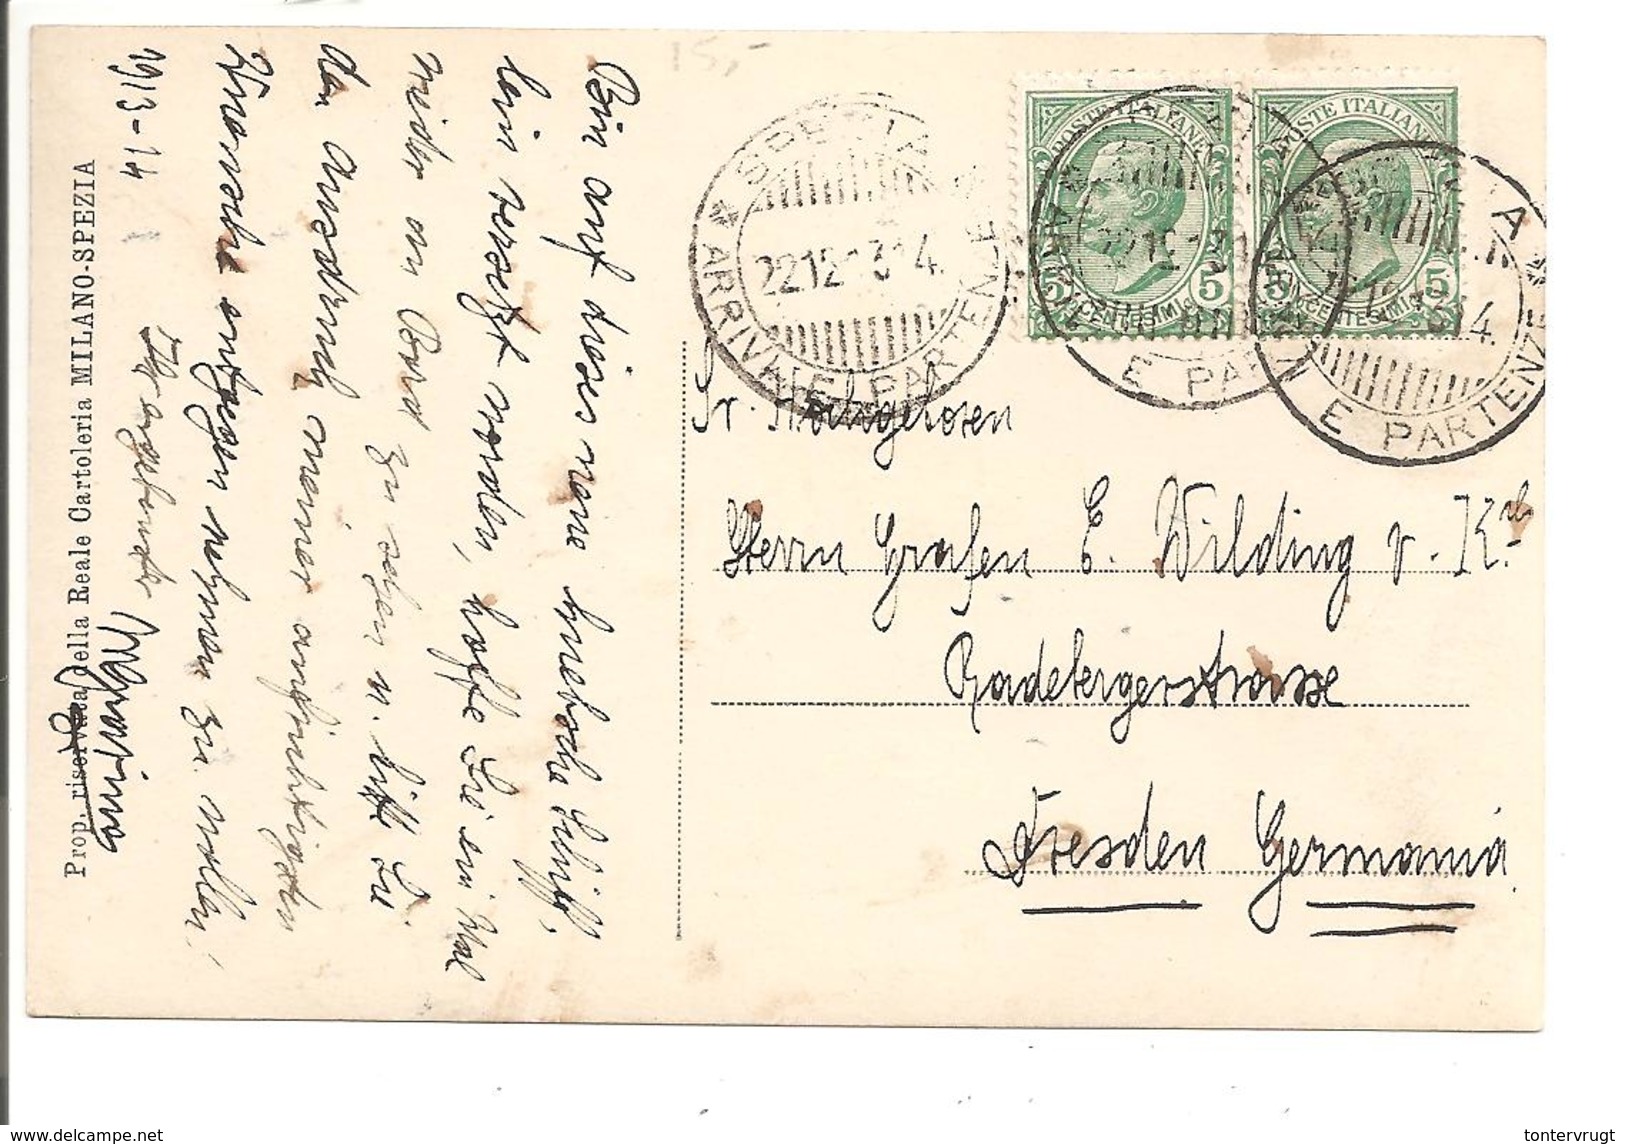 15,-
POSTE ITALIANE
5 CENTESIMI 5
POSTE ITALIANE
5 CENTESIMI 5
SPEZIA
22 12 13 14.
ARRIVI E PARTENZE
ARRIVI E PARTENZE
ARRIVI E PARTENZE
Sr. Hochgeboren
Herrn Grafen E. Wilding v. K
Radebergerstrasse
Dresden Germania
Bin auf dieses neue
sein versetzt worden, hoffe Sie ein Mal
wieder an Bord zu sehen u. bitte Sie
den Ausdruck meiner aufrichtigsten
Wünsche entgegen nehmen zu wollen,
Ihr ergebenster
1913-14
Prop. riservata della Reale Cartoleria MILANO-SPEZIA
tontervrugt